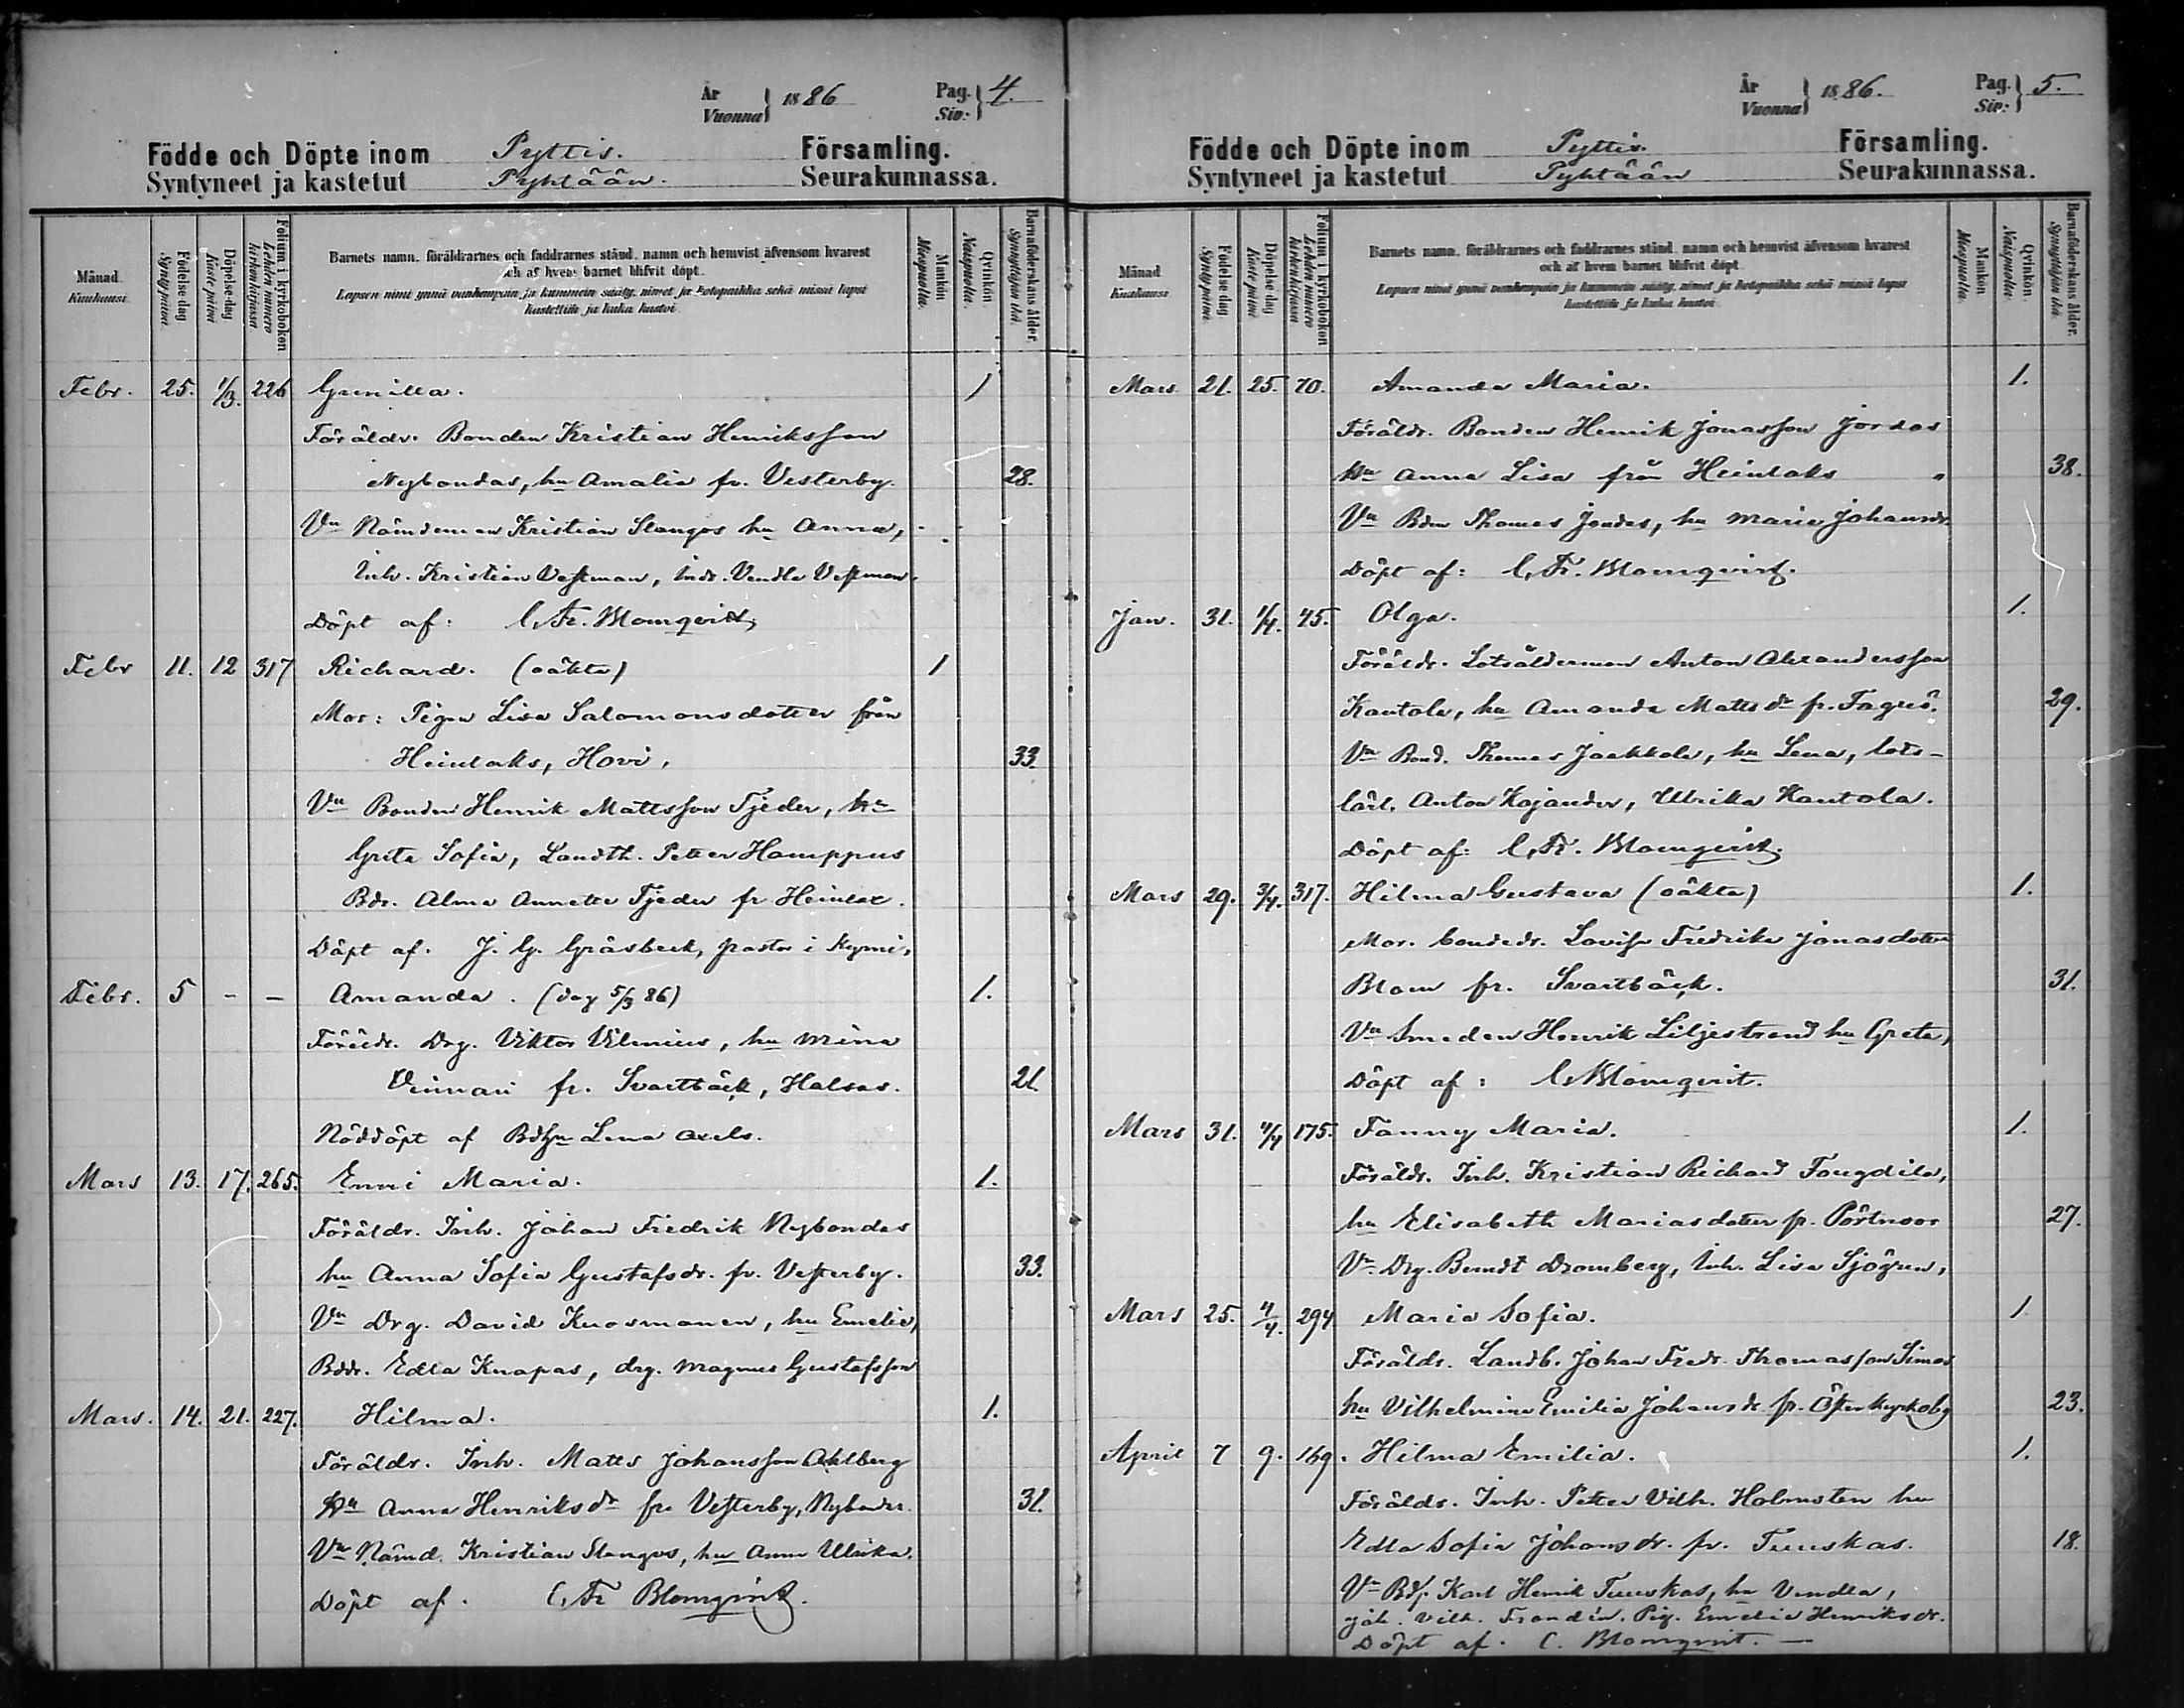 År
Vuonna
1886
Pag.
Siv:
4.
Födde och Döpte inom Pyttis. Församling.
Syntyneet ja kastetut Pyhtään. Seurakunnassa.
Månad. Kuukausi.
Födelse-dag Synty päivä.
Döpelse-dag Kaste päivä
Folium i kyrkoboken Lehden numero kirkonkirjassa
Barnets namn, föräldrarnes och faddrarnes stånd, namn och hemvist äfvensom hvarest
och af hvem barnet blifvit döpt.
Lapsen nimi ynnä vanhempain ja kummein sääty, nimet ja kotopaikka sekä missä lapsi
kastettiin ja kuka kastoi.
Mankön Miespuolta.
Qvinkön. Naispuolta.
Barnaföderskans ålder. Synnyttäjän ikä.
Febr. 25. 1/3. 226 Gunilla. 1
Föräldr. Bonden Kristian Henriksson
Nybondas, hu Amalia fr. Vesterby. 28.
Vn Nämdeman Kristian Stangos hu Anna,
Inh. Kristian Vestman, Indr. Vendla Vestman.
Döpt af: C. Fr. Blomqvist
Febr 11. 12 317 Richard. (oäkta) 1
Mor: Pigan Lisa Salomonsdotter från
Heinlaks, Hovi, 33
Vn Bonden Henrik Mattsson Tjeder, hu
Greta Sofia, Landth. Petter Hamppus
Bdr. Alma Annette Tjeder fr Heinlax.
Döpt af. J. G. Gråsbeck, pastor i Kymi.
Febr. 5 - - Amanda. (dog 5/3 86) 1.
Föräldr. Drg. Viktor Vilenius, hu Mina
Vinnari fr. Svartbäck, Halsas. 21.
Nöddöpt af Bdhu Lena Axels.
Mars 13. 17. 265. Enni Maria. 1.
Föräldr. Inh. Johan Fredrik Nybondas
hu Anna Sofia Gustafsdr. fr. Vesterby. 33.
Vn Drg. David Kuosmanen, hu Emelie,
Bddr. Edla Knapas, drg. Magnus Gustafsson
Mars. 14. 21. 227. Hilma. 1.
Föräldr. Inh. Matts Johansson Ahlberg
Hu Anna Henriksdr fr. Vesterby, Nybondas. 31.
Vn Nämd. Kristian Stangos, hu Anna Ulrika.
Döpt af. C. Fr Blomqvist.
År
Vuonna
1886.
Pag.
Siv:
5.
Födde och Döpte inom Pyttis. Församling.
Syntyneet ja kastetut Pyhtään Seurakunnassa.
Månad Kuukausi
Födelse-dag Synty päivä.
Döpelse-dag Kaste päivä
Folium i kyrkoboken Lehden numero kirkonkirjassa
Barnets namn, föräldrarnes och faddrarnes stånd, namn och hemvist äfvensom hvarest
och af hvem barnet blifvit döpt.
Lapsen nimi ynnä vanhempain ja kummein sääty, nimet ja kotopaikka sekä missä lapsi
kastettiin ja kuka kastoi.
Mankön Miespuolta.
Qvinkön. Naispuolta.
Barnaföderskans ålder. Synnyttäjän ikä.
Mars 21. 25. 70. Amanda Maria. 1.
Föräldr. Bonden Henrik Jonasson Jordas
Hu Anna Lisa från Heinlaks 38.
Vn Bdn Thomas Jordas, hu Maria Johansdr.
Döpt af: C. Fr. Blomqvist.
Jan. 31. 1/4. 45. Olga. 1.
Föräldr. Lotsålderman Anton Alexandersson
Kantola, hu Amanda Mattsdr fr. Fagerö. 29.
Vn Bond. Thomas Jaekkola, hu Lena, lots-
lärl. Anton Kojander, Ulrika Kantola.
Döpt af: C. Fr. Blomqvist.
Mars 29. 3/4. 317. Hilma Gustava (oäkta) 1.
Mor. bondedr. Lovisa Fredrika Jonasdotter
Blom fr. Svartbäck. 31.
Vn Smeden Henrik Liljestrand hu Greta,
Döpt af: C. Blomqvist.
Mars 31. 4/4 175. Fanny Maria. 1.
Föräldr. Inh. Kristian Richard Fougdila,
hu Elisabeth Mariasdotter fr. Pörtnoor 27.
Vn. Drg. Berndt Dromberg, Inh. Lisa Sjögren,
Mars 25. 4/4. 294 Maria Sofia. 1.
Föräldr. Landb. Johan Fredr. Thomasson Simos
hu Vilhelmina Emilia Johansdr fr. Öster Kyrkoby 23.
April 7 9. 169. Hilma Emilia. 1.
Föräldr. Inh. Petter Vilh. Holmsten hu
Edla Sofia Johansdr. fr. Tuuskas. 18.
Vn Bdf. Karl Henrik Tuuskas, hu Vendla,
Joh. Vilh. Frandén. Pig. Emelie Henriksdr.
Döpt af. C. Blomqvist. —